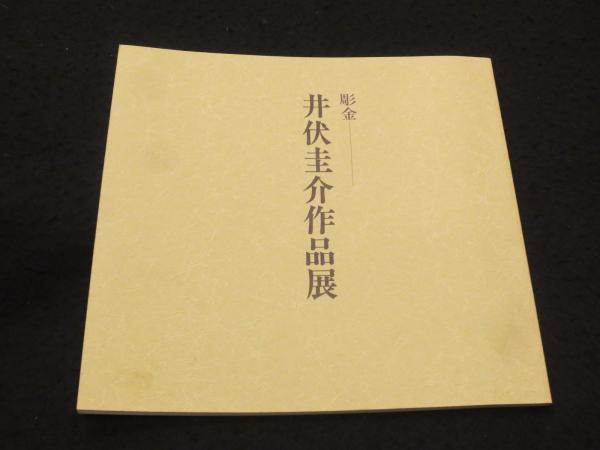 彫金
井伏圭介作品展